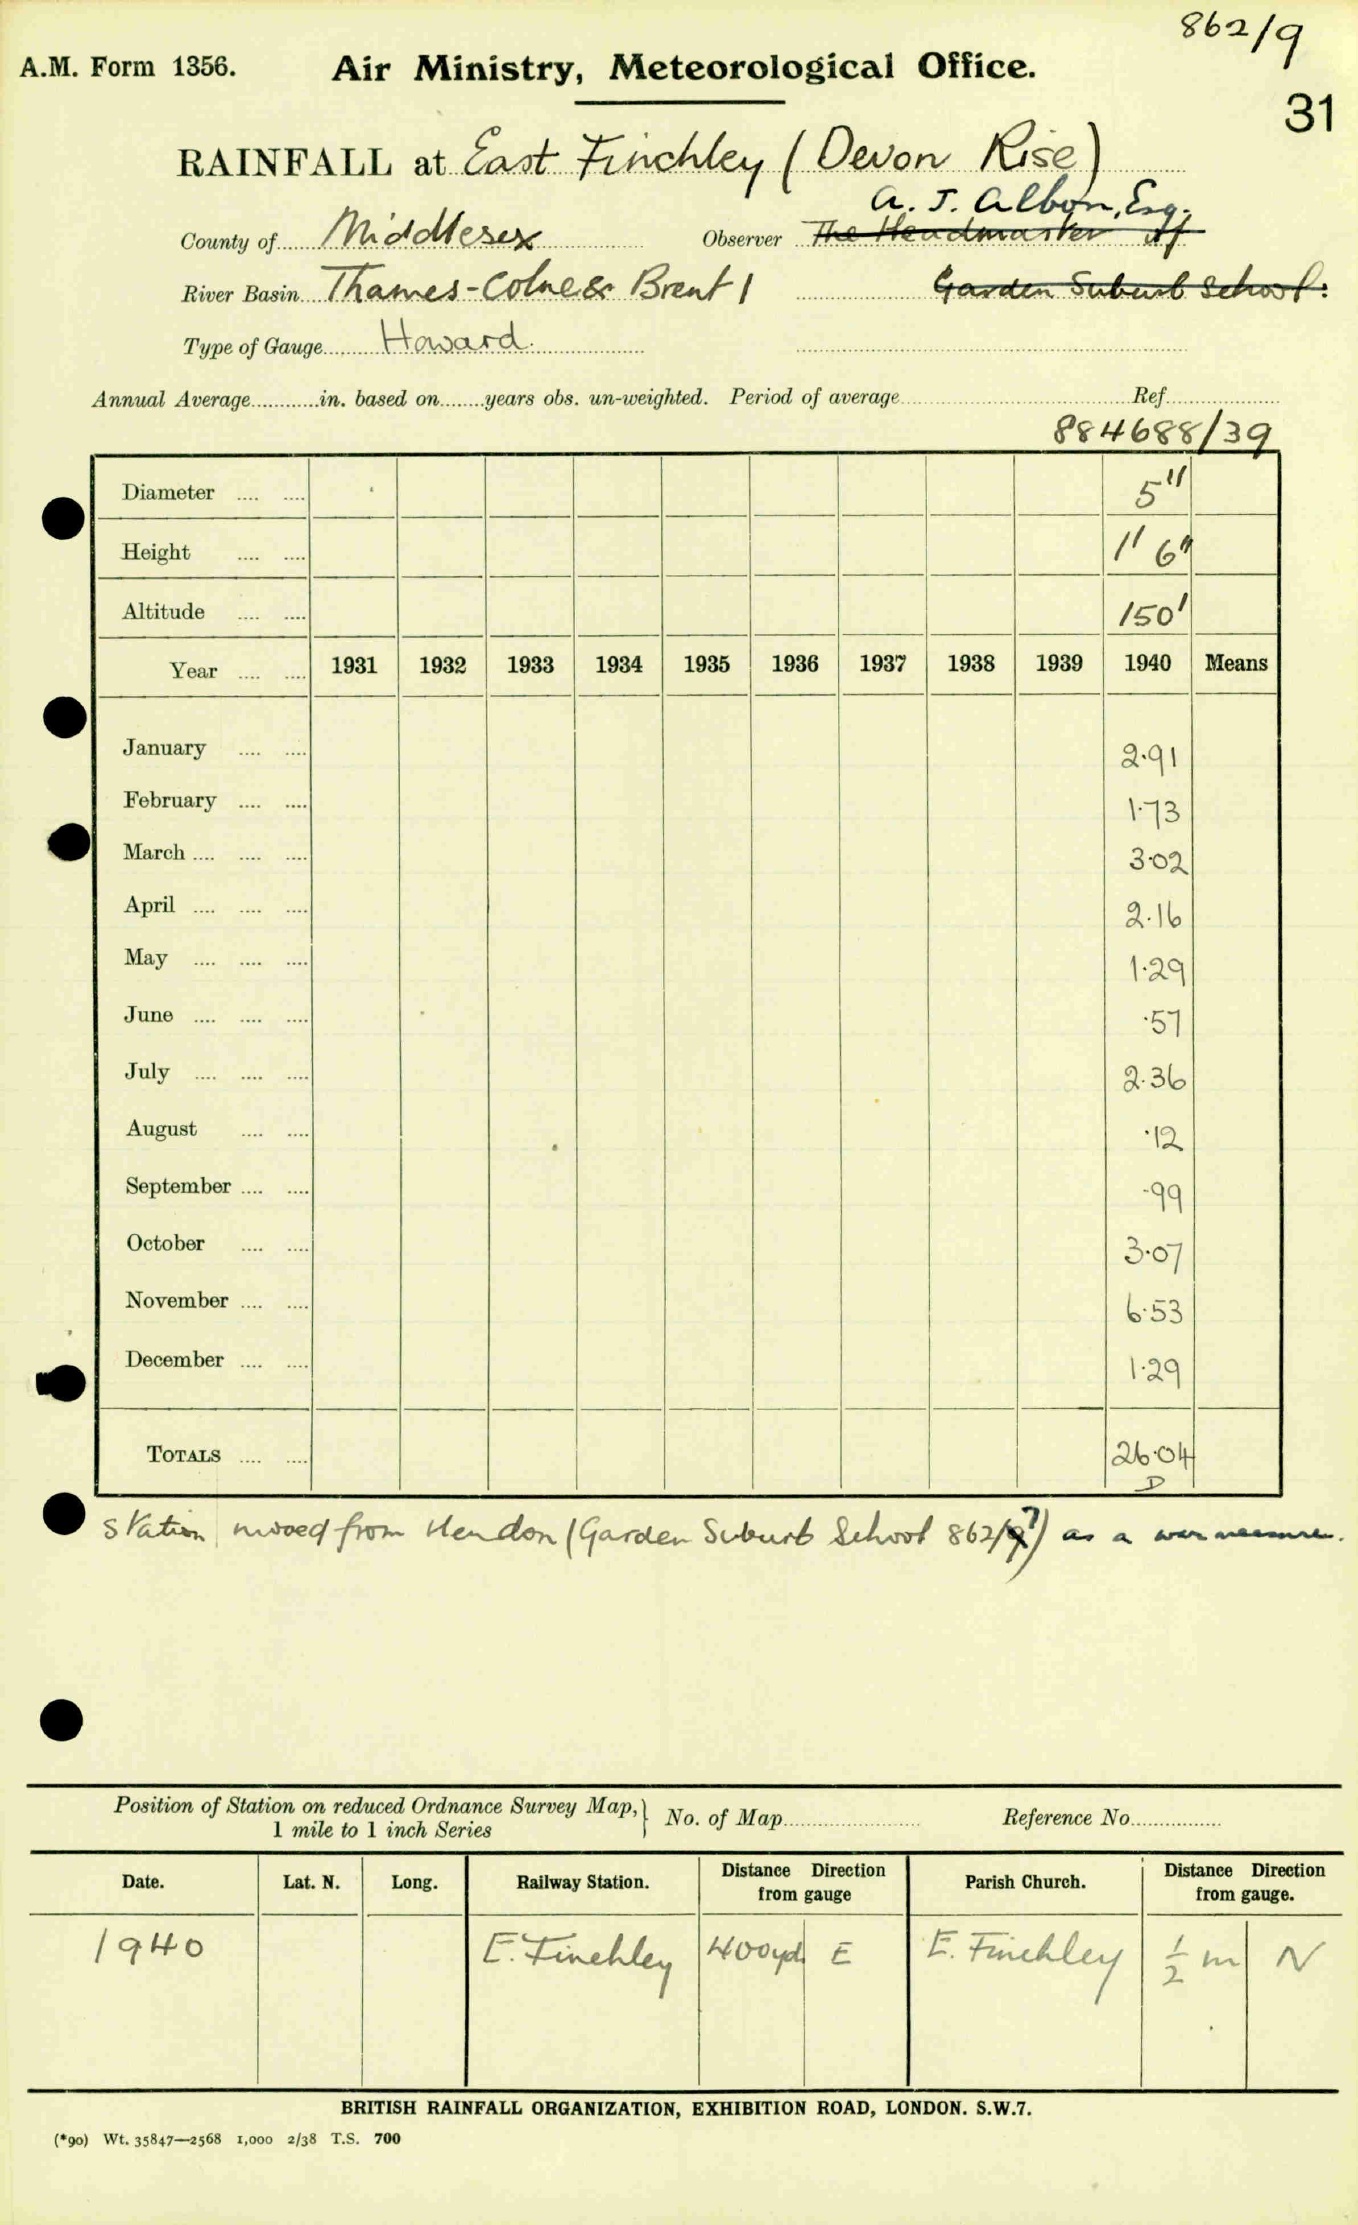 862/9
A.M. Form 1356. Air Ministry, Meteorological Office.
31
RAINFALL at East Finchley (Devon Rise)
A. J. Albon, Esq.
County of Middlesex Observer The Headmaster of
River Basin Thames-Colne & Brent 1 Garden Suburb School.
Type of Gauge Howard.
Annual Average............in. based on........years obs. un-weighted. Period of average.................... Ref....................
884688/39
Diameter .... .... 5"
Height .... .... 1' 6"
Altitude .... .... 150'
Year .... .... 1931 1932 1933 1934 1935 1936 1937 1938 1939 1940 Means
January .... .... 2.91
February .... .... 1.73
March .... .... .... 3.02
April .... .... .... 2.16
May .... .... .... 1.29
June .... .... .... .57
July .... .... .... 2.36
August .... .... .12
September .... .... .99
October .... .... 3.07
November .... .... 6.53
December .... .... 1.29
TOTALS .... .... 26.04
D
Station moved from Hendon (Garden Suburb School 862/7) as a war measure.
Position of Station on reduced Ordnance Survey Map, 1 mile to 1 inch Series } No. of Map.................... Reference No....................
Date. Lat. N. Long. Railway Station. Distance Direction from gauge Parish Church. Distance Direction from gauge.
1940 E. Finchley 400yd E E. Finchley 1/2 m N
BRITISH RAINFALL ORGANIZATION, EXHIBITION ROAD, LONDON. S.W.7.
(*90) Wt. 35847—2568 1,000 2/38 T.S. 700